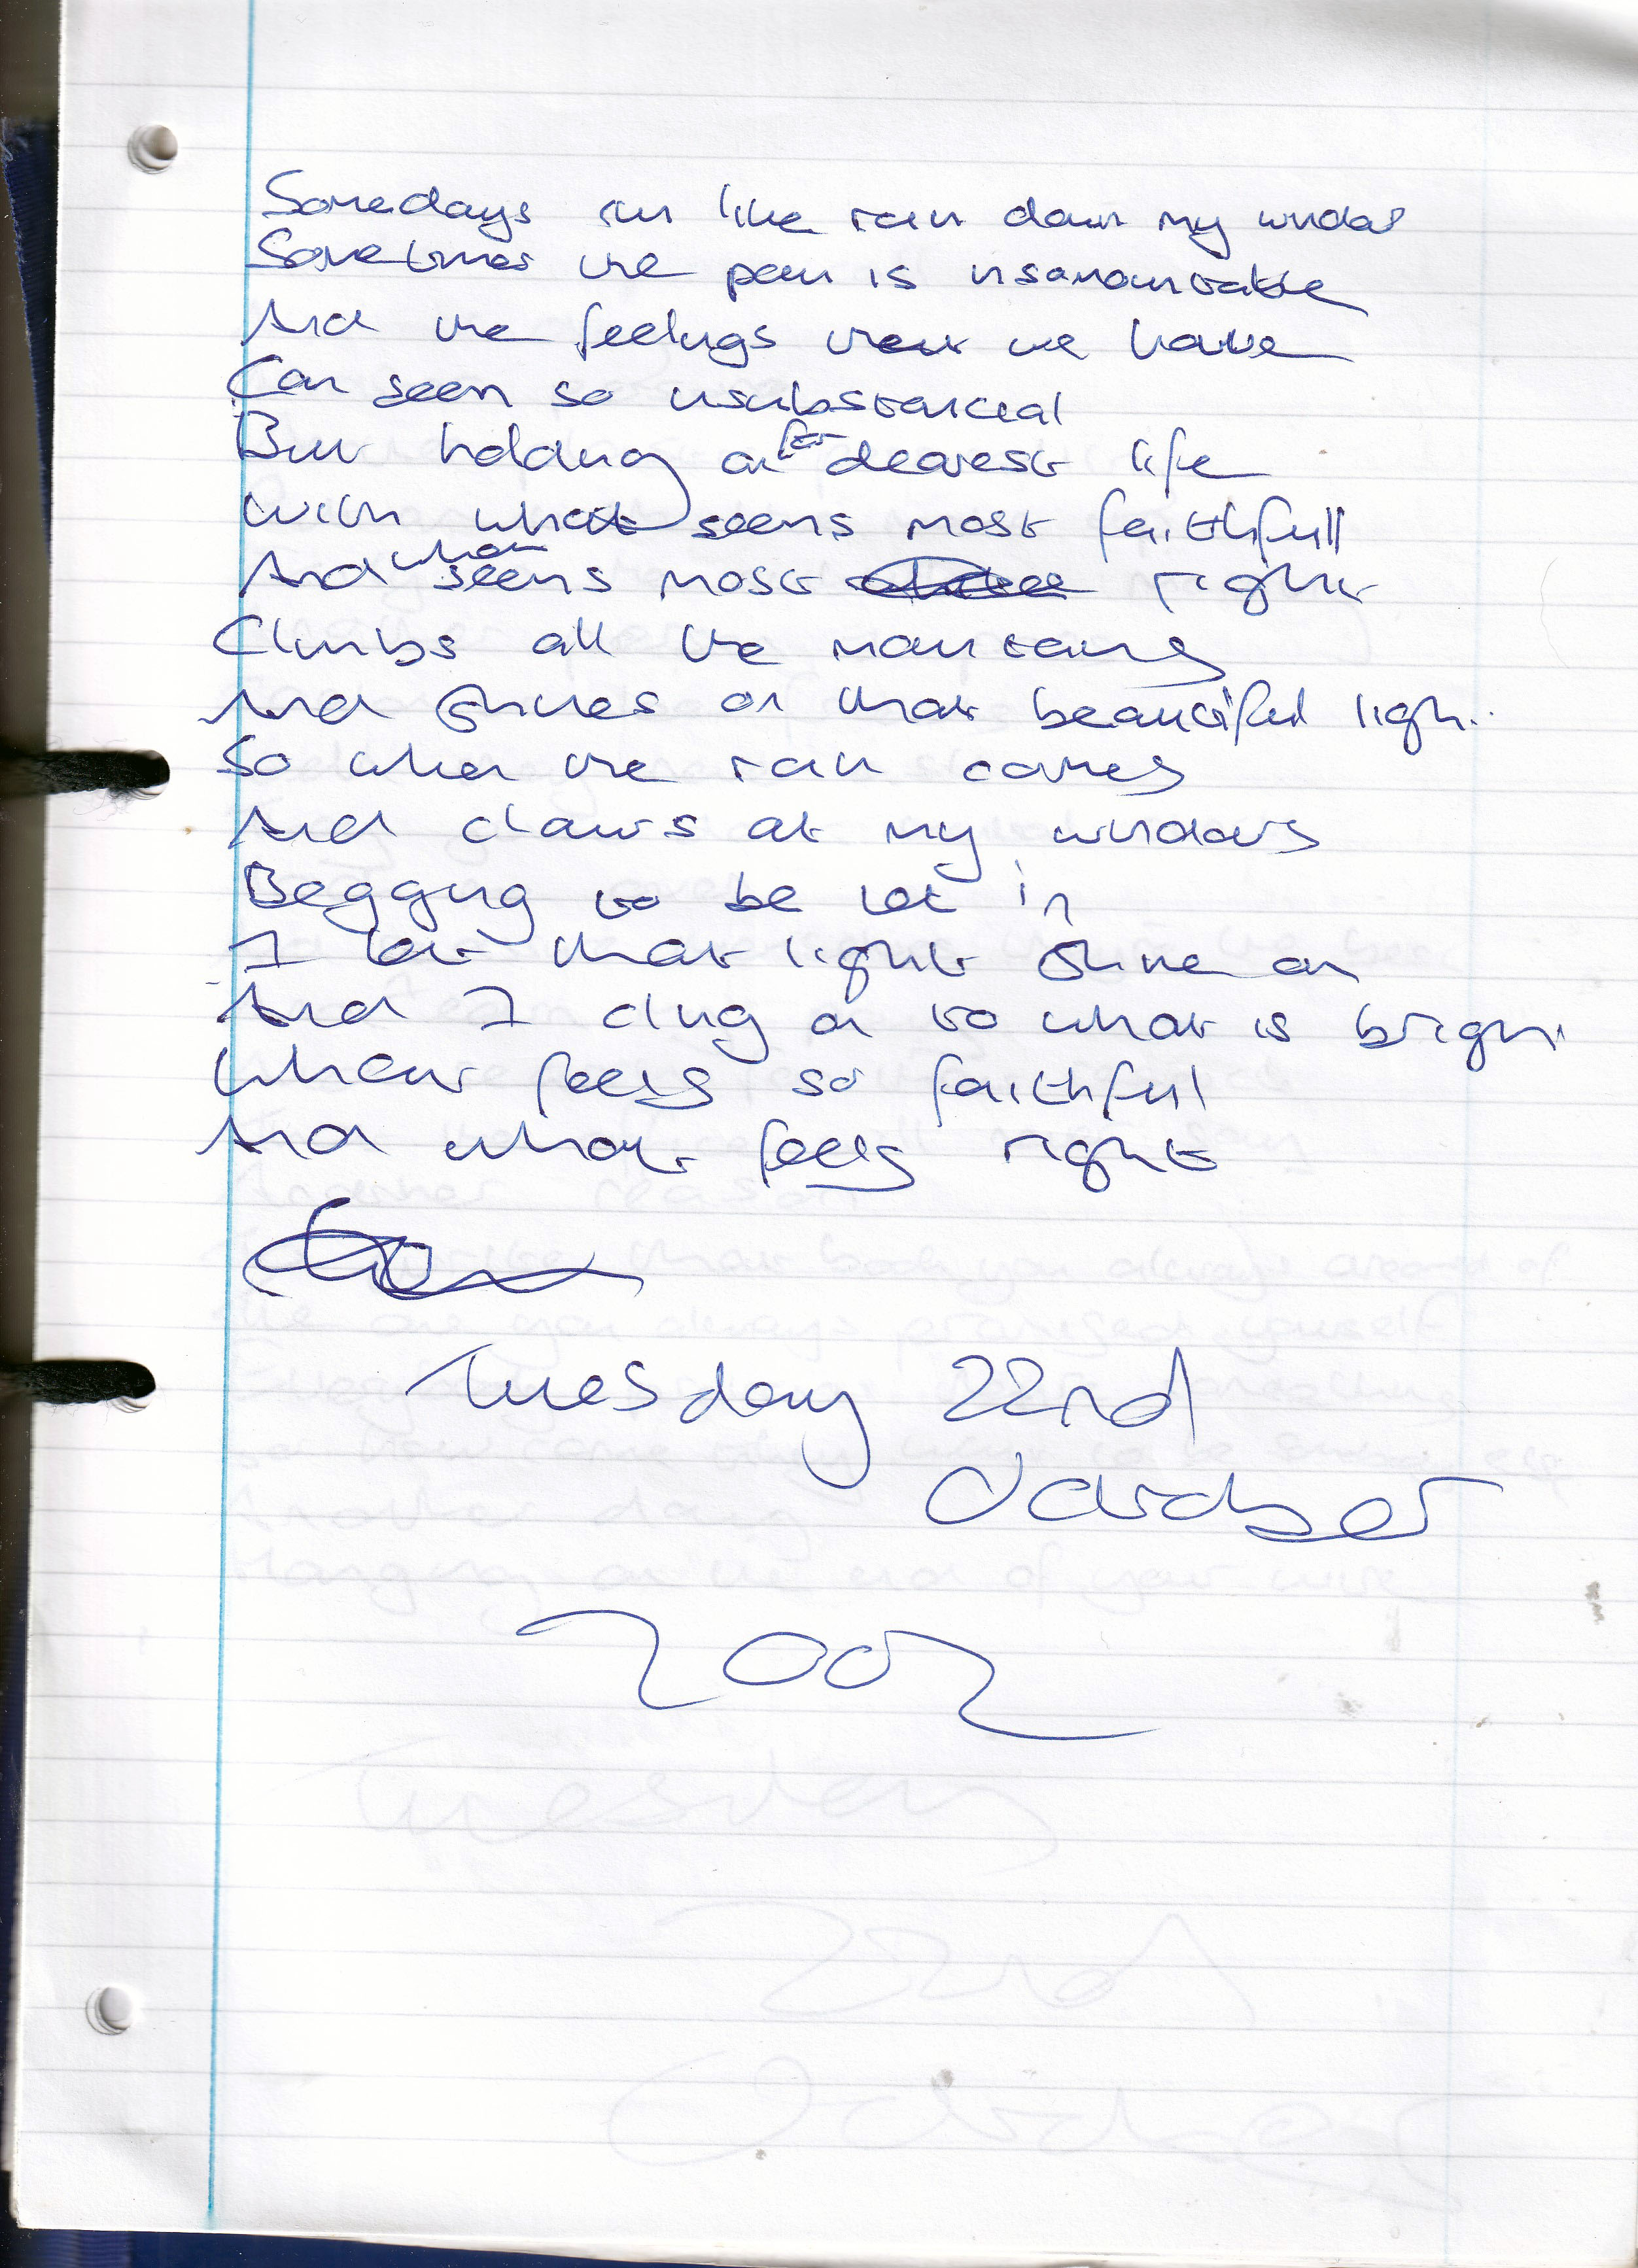 Somedays run like rain down my window
Sometimes the pain is insamountable
And the feelings that we have
Can seem so insubstanceal
But holding on for dearest life
With what seems most faithfull
And what seems most right
Climbs all the mountains
And shines on that beautiful light
So when the rain comes
And claws at my windows
Begging to be let in
I let that light shine on
And I cling on to what is bright
What feels so faithful
And what feels right
Tuesday 22nd
October
2002